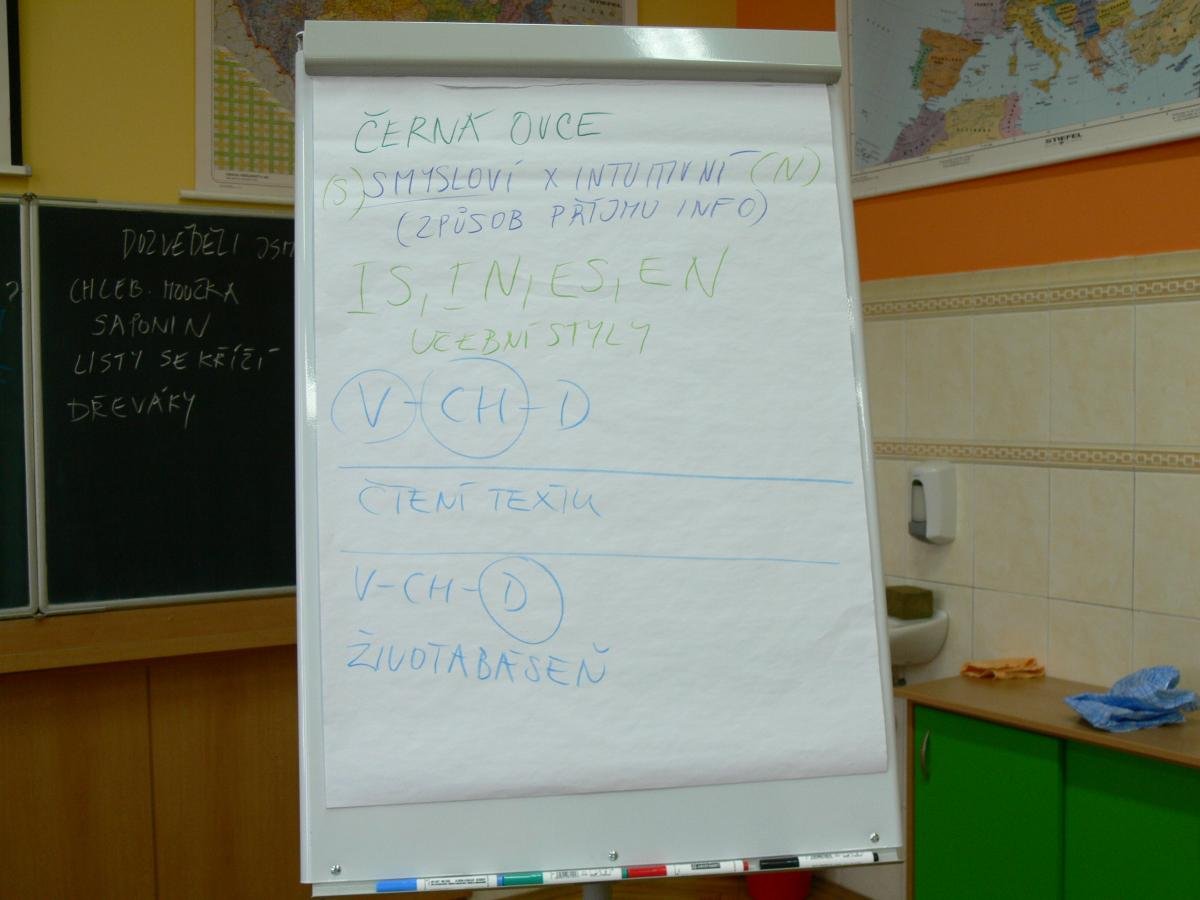 ČERNÁ OVCE
(S) SMYSLOVÍ X INTUITIVNÍ (N)
(ZPŮSOB PŘÍJMU INFO)
IS, IN, ES, EN
UČEBNÍ STYLY
V-CH-D
ČTENÍ TEXTU
V-CH-D
ŽIVOTABÁSEŇ
DOZVĚDĚLI JSM
?
CHLEB. MOUČKA
SAPONIN
LISTY SE KŘÍŽÍ
DŘEVÁKY
STIEFEL
STIEFEL